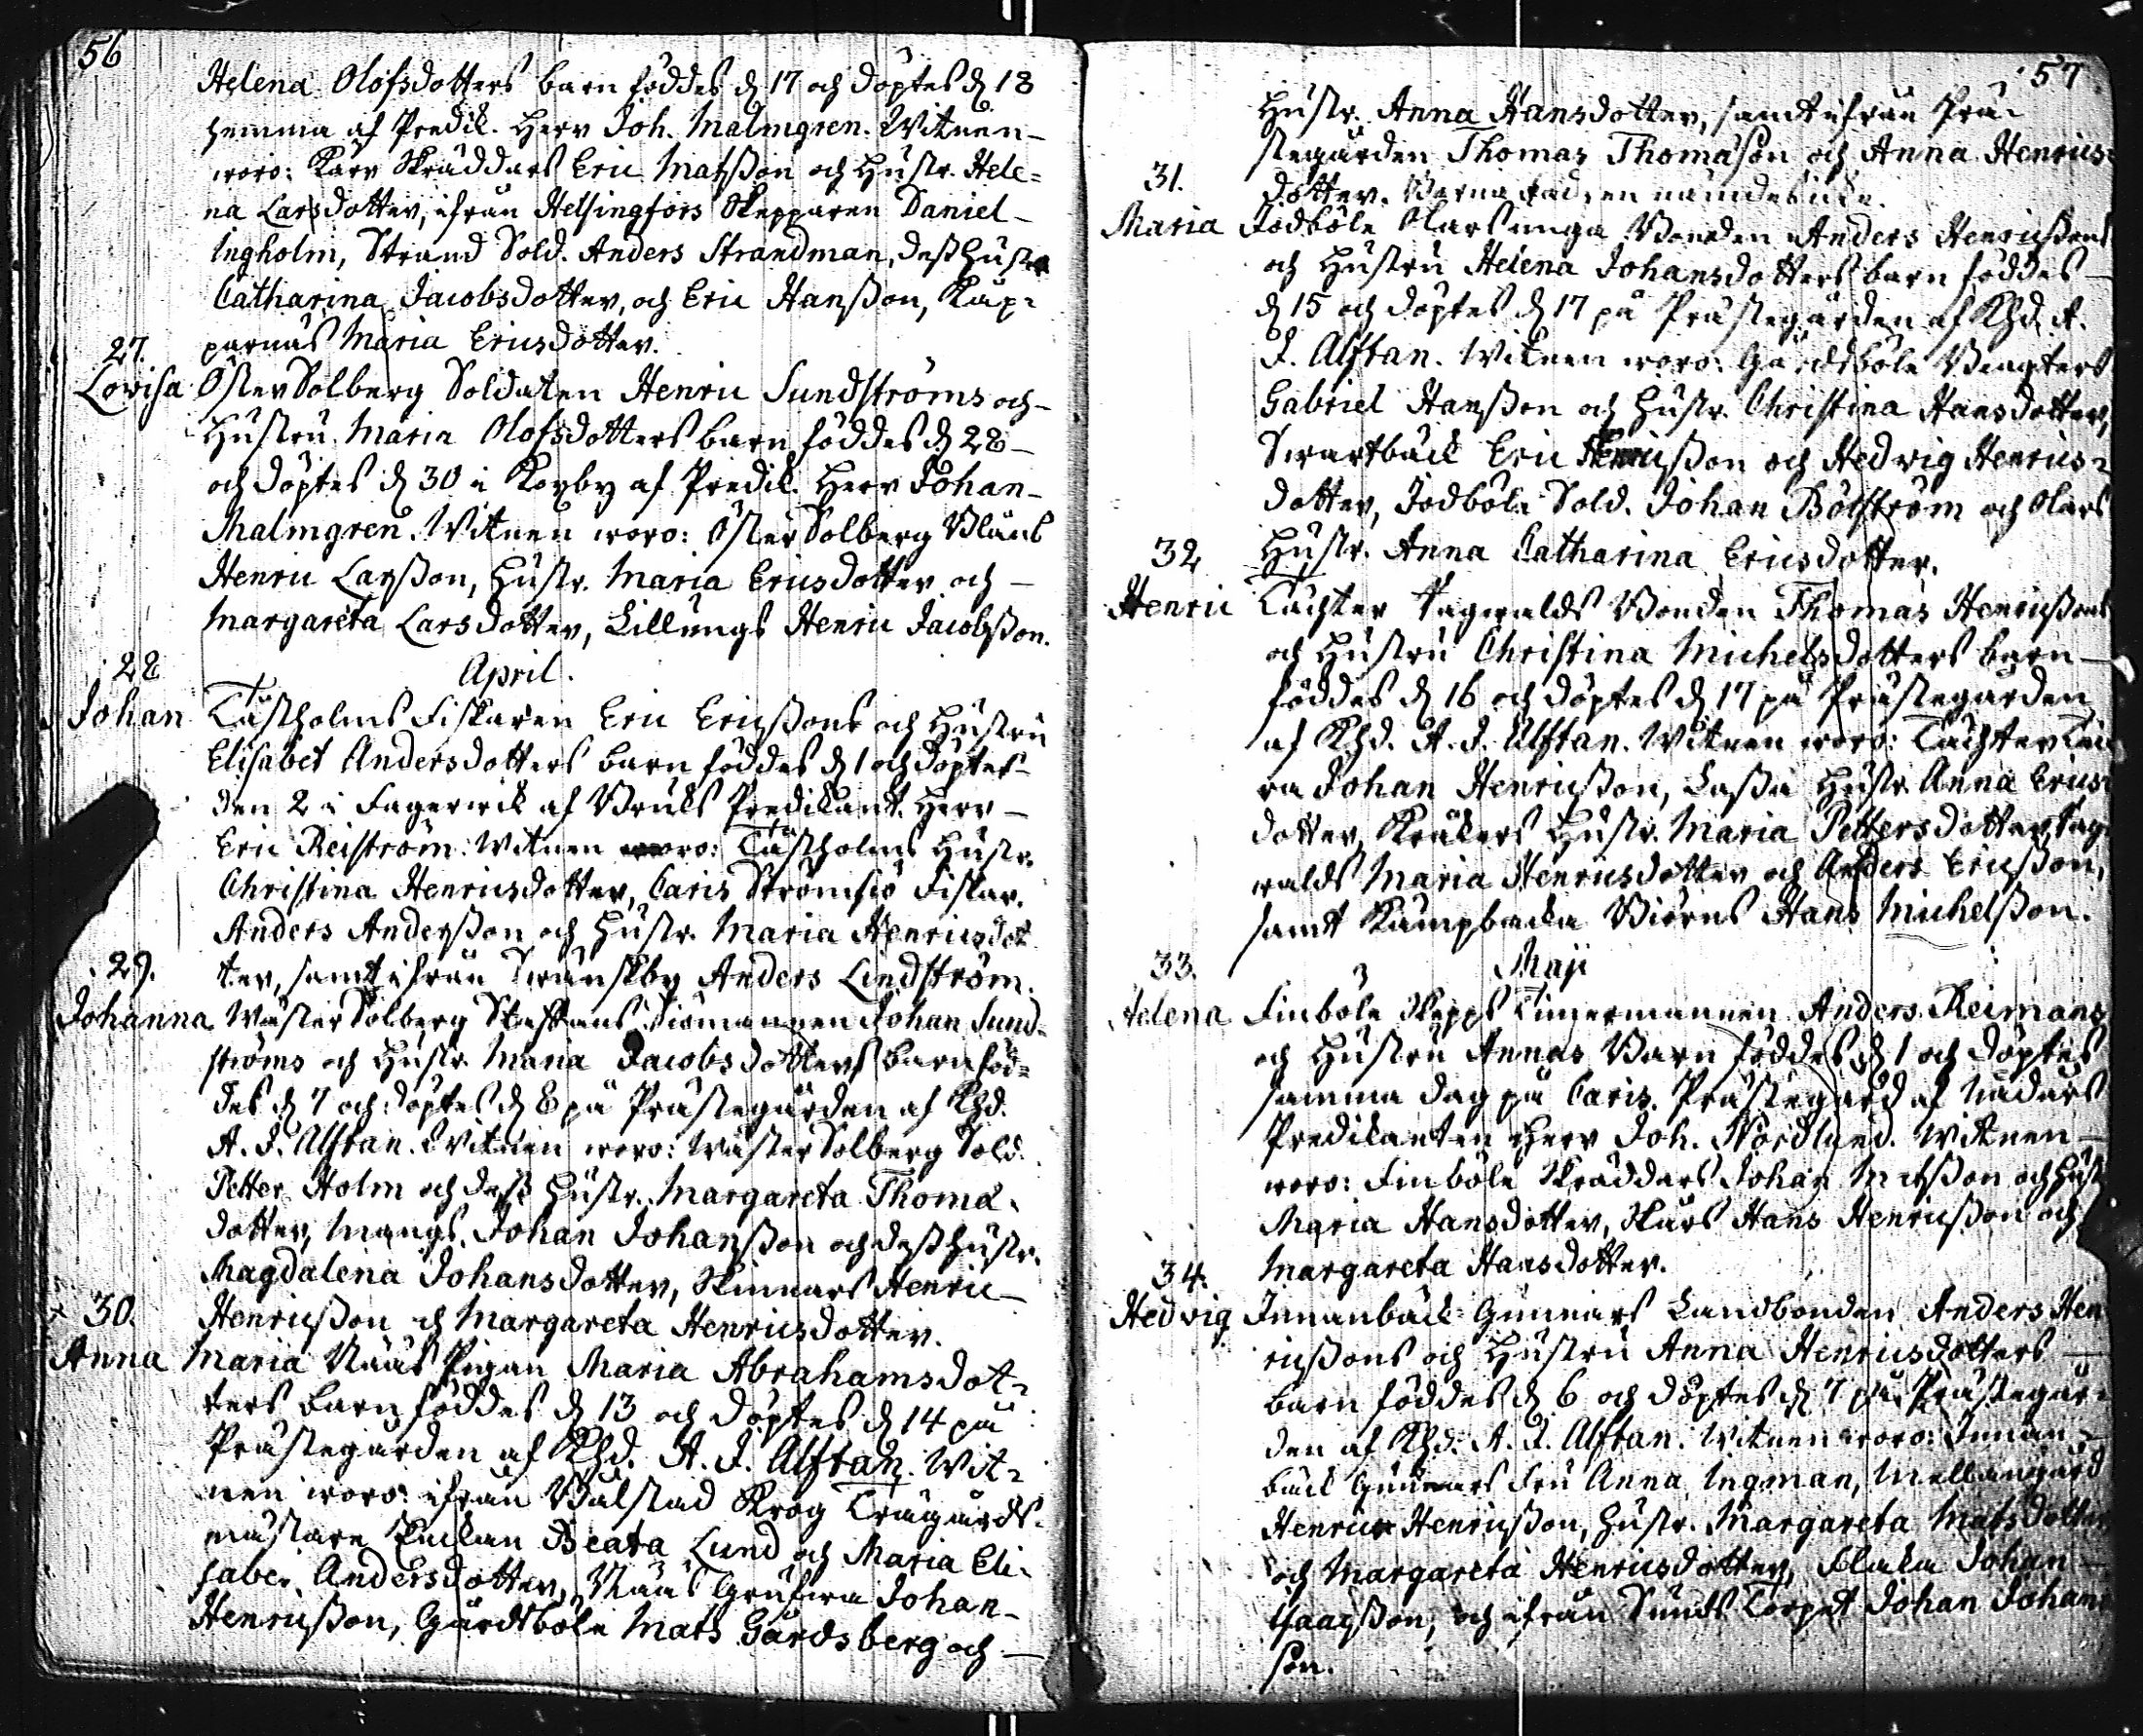 56
Helena Olofsdotters barn föddes d. 17 och döptes d. 18
hemma af Predik. Herr Joh. Malmgren. Witnen
woro: Kärr Skräddars Eric Matsson och Hustr. Hele-
na Larsdotter, ifrån Helsingfors Skepparen Daniel
Ingholm, Strand Sold. Anders Strandman, dess Hustr
Catharina Jacobsdotter, och Eric Hansson, Käp-
parnäs Maria Ericsdotter.
27.
Lovisa Öster Solberg Soldaten Henric Sundströms och
Hustru Maria Olofsdotters barn föddes d. 28
och döptes d. 30 i Koxby af Predik. Herr Johan
Malmgren. Witnen woro: Öster Solberg
Henric Larsson, Hustr. Maria Ericsdotter och
Margareta Larsdotter, Lillungs Henric Jacobsson.
April.
28
Johan Täktholms Fiskaren Eric Ericssons och Hustru
Elisabet Andersdotters barn föddes d. 1 och döptes
den 2 i Fagerwik af Bruks Predikant. Herr
Eric Reiström. Witnen woro: Täktholms Hustr.
Christina Henricsdotter, Caris Strömsiö Fiskar.
Anders Andersson och Hustr. Maria Henricsdot
ter, samt ifrån Swänskby Anders Lindström.
29.
Johanna Wäster Solberg Staffans Siömannen Johan Sund-
ströms och Hustr. Maria Jacobsdotters barn föd-
des d. 7 och döptes d. 8 på Prästegården af Khd.
A. J. Alftan. Witnen woro: Wäster Solberg Sold.
Petter Holm och dess Hustr. Margareta Thomæ
dotter, Mangs Johan Johansson och dess Hustr.
Magdalena Johansdotter, Skinnars Henric
Henricsson och Margareta Henricsdotter.
30.
Anna Maria Nääs Pigan Maria Abrahamsdot-
ters barn föddes d. 13 och döptes d. 14 på
Prästegården af Khd. A. J. Alftan. Wit-
nen woro: ifrån Bålstad Krog Trägårds-
mästare Enckan Beata Lund och Maria Eli-
sabet Andersdotter, Nääs Johan
Henricsson, Gårdsböle Mats Gårdsberg och
57
Hustr. Anna Hansdotter, samt ifrån Prä-
stegården Thomas Thomasson och Anna Henrics-
dotter. Barnafadren nämdes icke.
31.
Maria Jodböle Klarsunga Bonden Anders Henricssons
och Hustru Helena Johansdotters barn föddes
d. 15 och döptes d. 17 på Prästegården af Khd. A.
J. Alftan. Witnen woro: Gårdsböle Bengters
Gabriel Hansson och Hustr. Christina Hansdotter,
Swartbäck Eric Henricsson och Hedvig Henrics-
dotter, Jodböle Sold. Johan Bölström och Olars
Hustr. Anna Catharina Ericsdotter.
32
Henric Täckter Tagwalds Bonden Thomas Henricssons
och Hustru Christina Michelsdotters barn
föddes d. 16 och döptes d. 17 på Prästegården
af Khd. A. J. Alftan. Witnen woro: Täckter
ra Johan Henricsson, Lassa Hustr. Anna Erics-
dotter, Kråkers Hustr. Maria Pettersdotter, Tag-
walds Maria Henricsdotter och Anders Ericsson,
samt Kämpbacka Biörns Hans Michelsson.
Maji
33.
Helena Finböle Skepps Timermannen Anders Reimans
och Hustru Annas Barn föddes d. 1 och döptes
samma dag på Caris Prästegård af Nådårs
Predikanten Herr Joh. Nordlund. Witnen
woro: Finböle Skräddars Johan Matsson och Hust
Maria Hansdotter, Skårs Hans Henricsson och
Margareta Hansdotter.
34.
Hedvig Innanbäck Gunnars Landbonden Anders Hen
ricssons och Hustru Anna Henricsdotters
barn föddes d. 6 och döptes d. 7 på Prästegår-
den af Khd. A. J. Alftan. Witnen woro: Innan-
bäck Gunnars Fru Anna Ingman, Mellangård
Henric Henricsson, Hustr. Margareta Matsdotter
och Margareta Henricsdotter, Johan
Isaacsson, och ifrån Sunds Torpet Johan Johans
son.